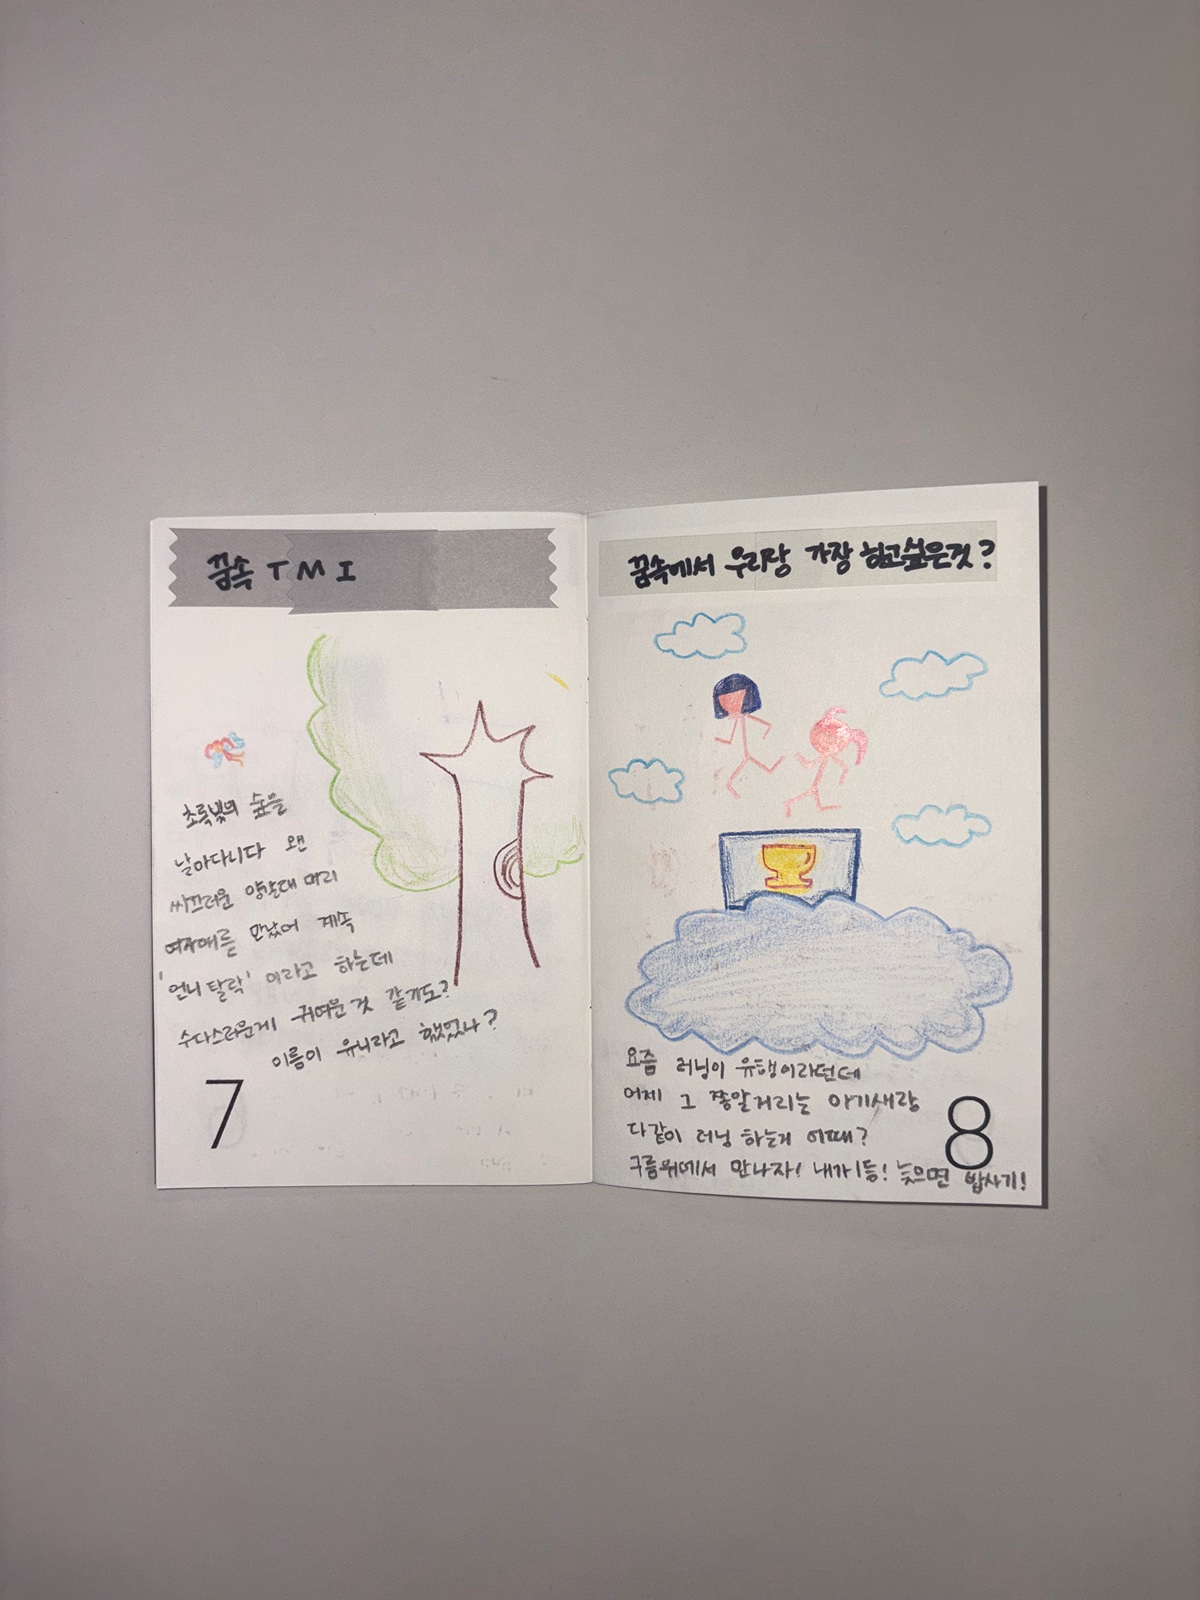 꿈속 TMI
초록빛의 숲을
날아다니다 왠
싸끄러운 양갈대 머리
여자애를 만났어 계속
'언니 탈락' 이라고 하는데
수다스러운게 귀여운 것 같기도?
이름이 유니라고 했었나?
7
꿈속에서 우리랑 가장 하고싶은것?
요즘 러닝이 유행이라던데
어제 그 쫑알거리는 아기새랑
다같이 러닝 하는거 어때?
구름위에서 만나자! 내가 1등! 늦으면 밥사기!
8